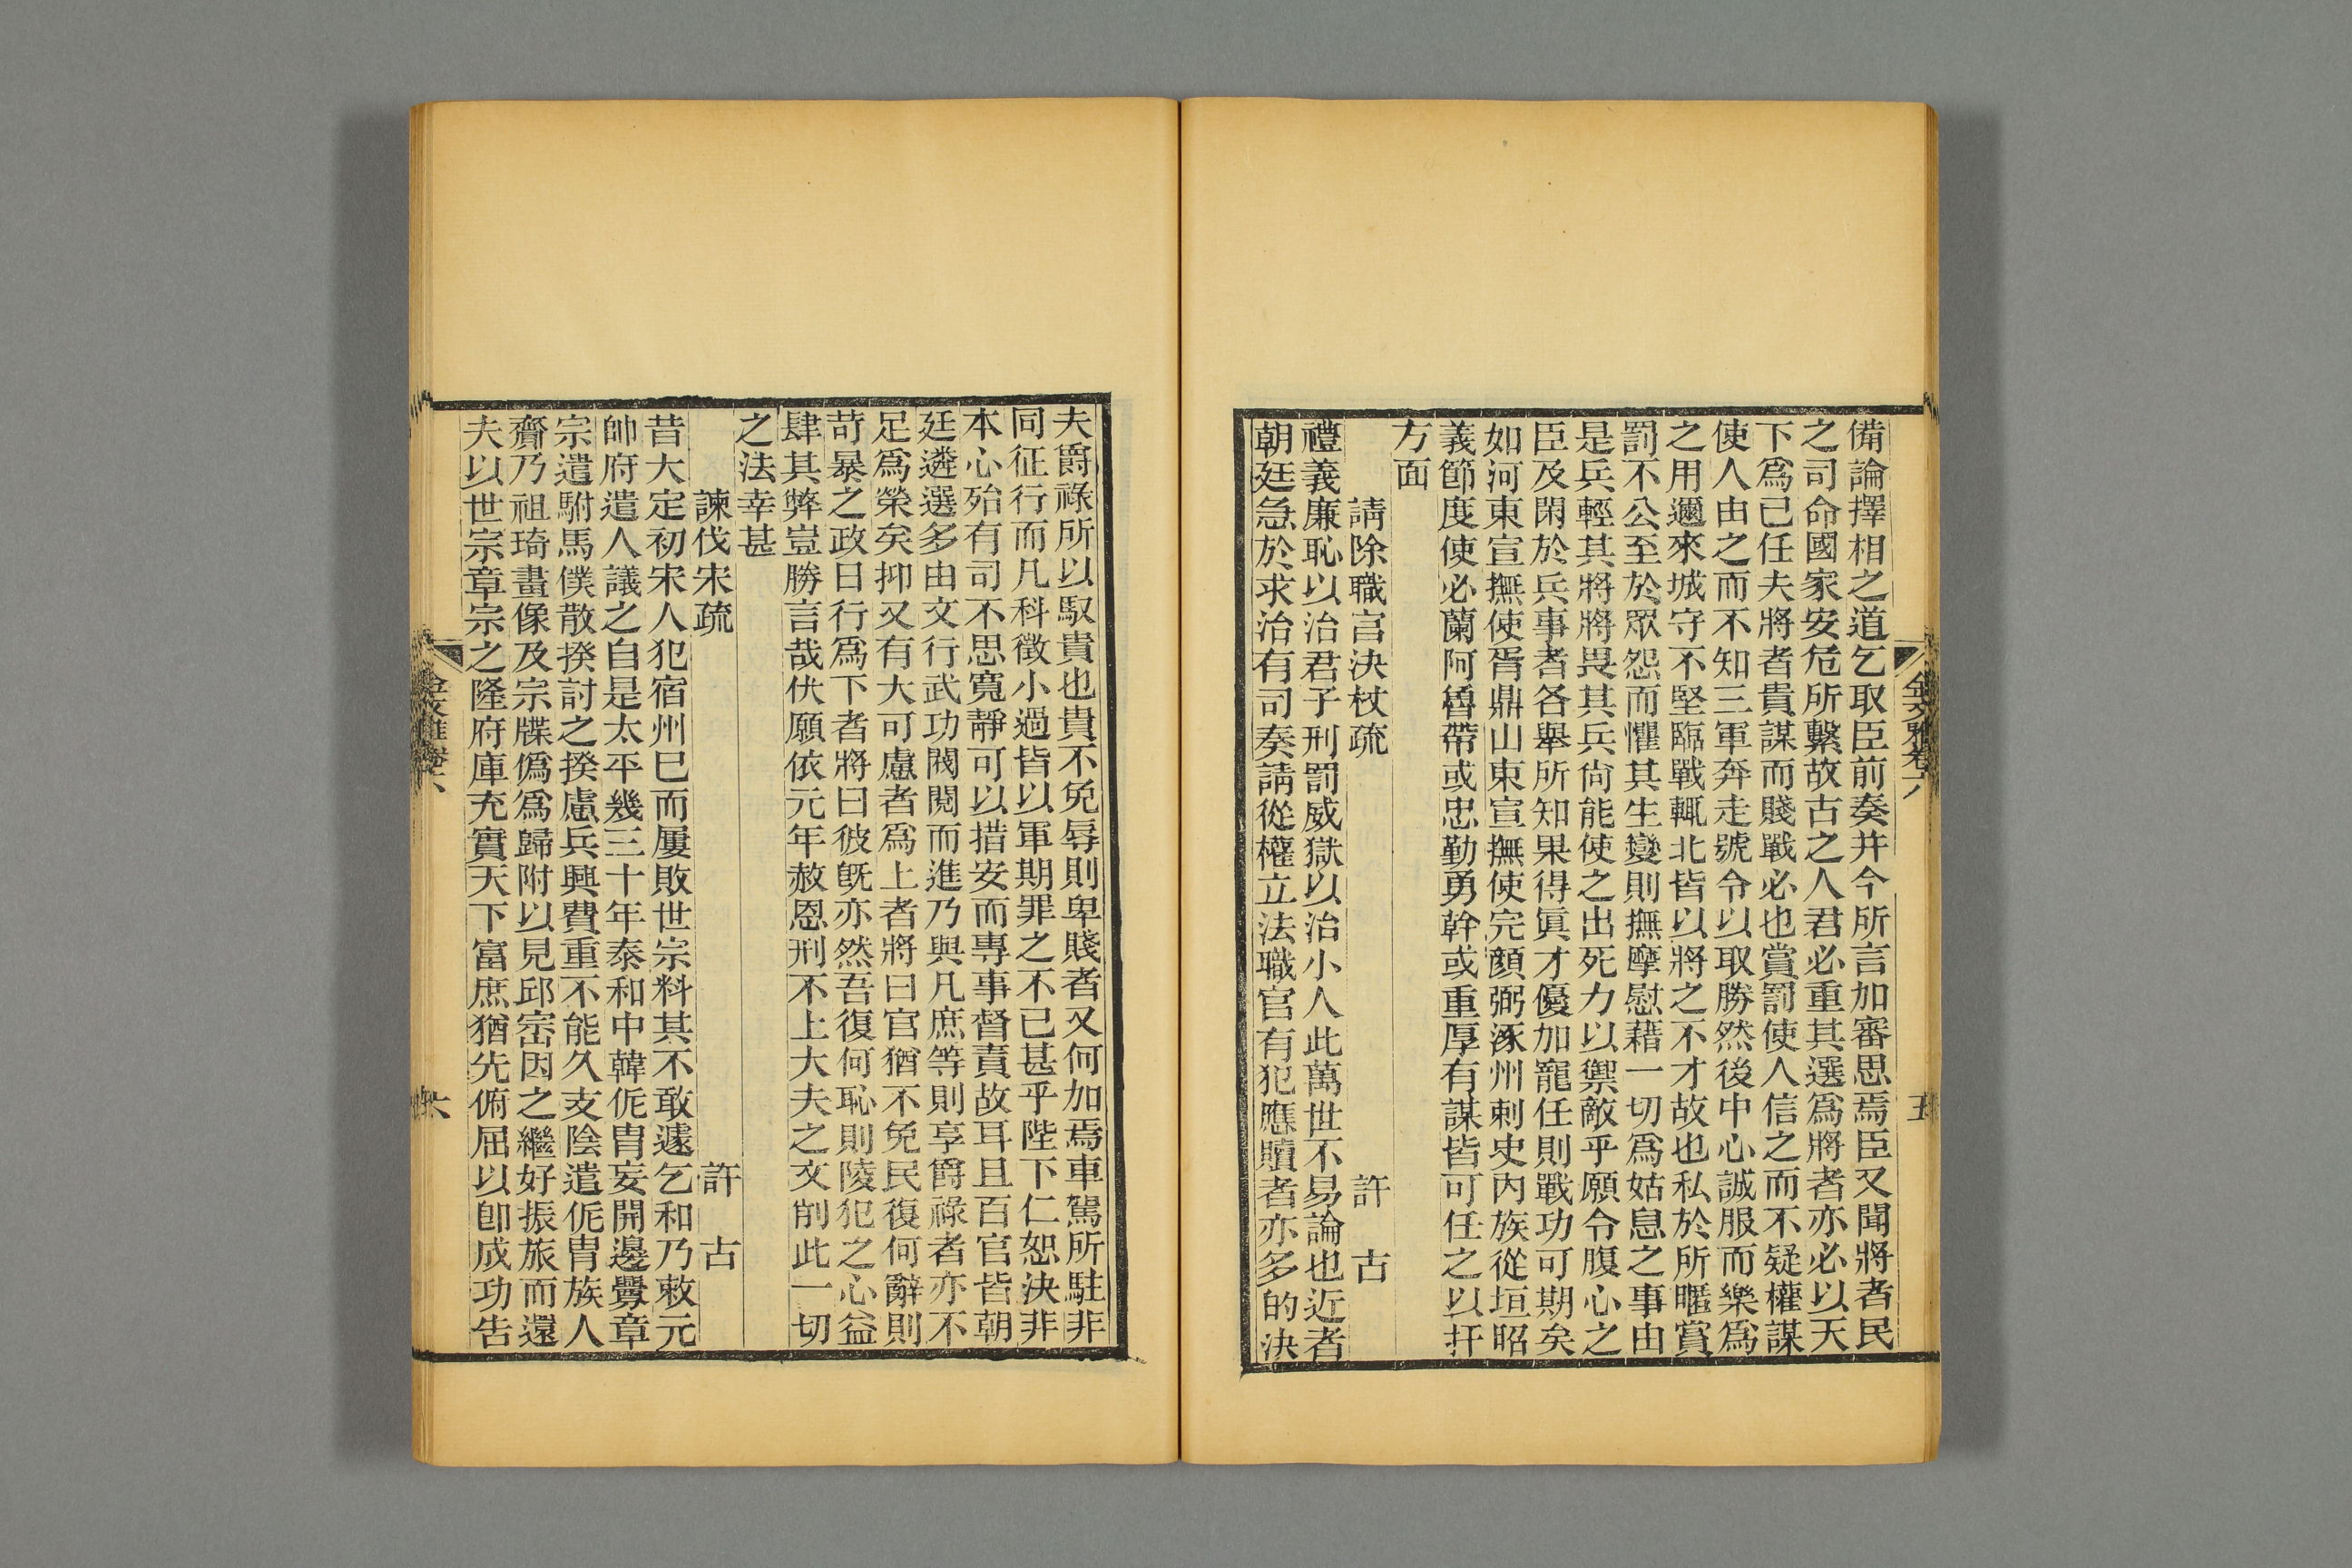 備論擇相之道乞取臣前奏并今所言加審思焉臣又聞將者民
之司命國家安危所繫故古之人君必重其選爲將者亦必以天
下爲己任夫將者貴謀而賤戰必也賞罰使人信之而不疑權謀
使人由之而不知三軍奔走號令以取勝然後中心誠服而樂爲
之用邇來城守不堅臨戰輒北皆以將之不才故也私於所暱賞
罰不公至於眾怨而懼其生變則撫摩慰藉一切爲姑息之事由
是兵輕其將將畏其兵尙能使之出死力以禦敵乎願令腹心之
臣及閑於兵事者各舉所知果得眞才優加寵任則戰功可期矣
如河東宣撫使胥鼎山東宣撫使完顏弼涿州刺史內族從垣昭
義節度使必蘭阿魯帶或忠勤勇幹或重厚有謀皆可任之以扞
方面
請除職官決杖疏 許古
禮義廉恥以治君子刑罰威獄以治小人此萬世不易論也近者
朝廷急於求治有司奏請從權立法職官有犯應贖者亦多的決
金文雅卷六 五
夫爵祿所以馭貴也貴不免辱則卑賤者又何加焉車駕所駐非
同征行而凡科徵小過皆以軍期罪之不已甚乎陛下仁恕決非
本心殆有司不思寬靜可以措安而專事督責故耳且百官皆朝
廷遴選多由文行武功閥閱而進乃與凡庶等則享爵祿者亦不
足爲榮矣抑又有大可慮者爲上者將曰官猶不免民復何辭則
苛暴之政日行爲下者將曰彼旣亦然吾復何恥則陵犯之心益
肆其弊豈勝言哉伏願依元年赦恩刑不上大夫之文削此一切
之法幸甚
諫伐宋疏 許古
昔大定初宋人犯宿州巳而屢敗世宗料其不敢遽乞和乃敕元
帥府遣人議之自是太平幾三十年泰和中韓侂胄妄開邊釁章
宗遣駙馬僕散揆討之揆慮兵興費重不能久支陰遣侂胄族人
齎乃祖琦畫像及宗牒僞爲歸附以見邱崈因之繼好振旅而還
夫以世宗章宗之隆府庫充實天下富庶猶先俯屈以卽成功告
金文雅卷六 六